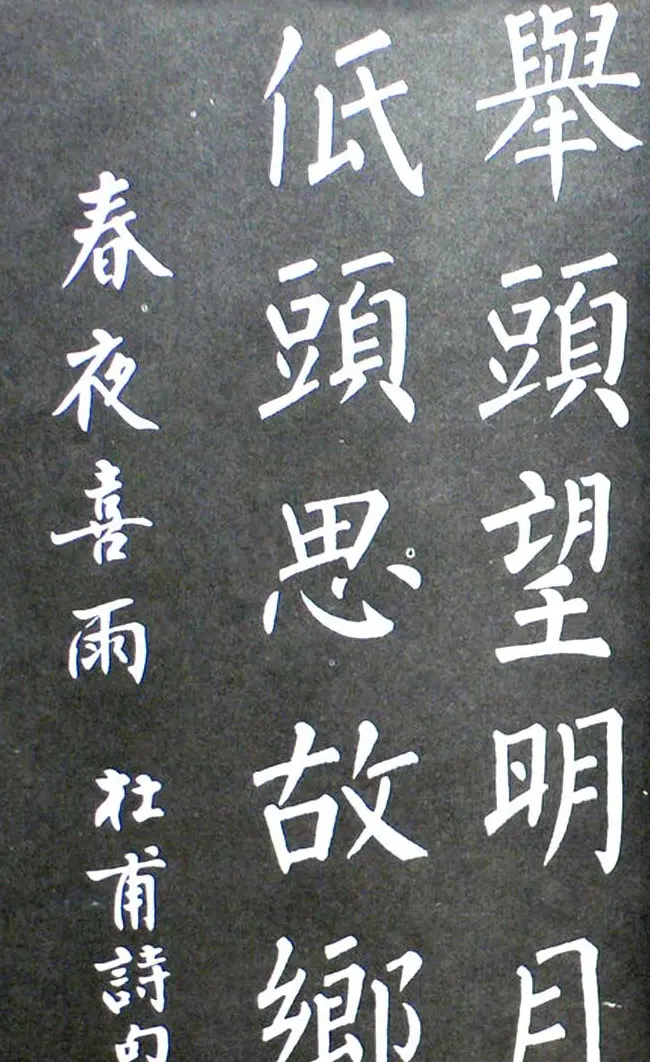 舉頭望明月
低頭思故鄉
春夜喜雨 杜甫詩句